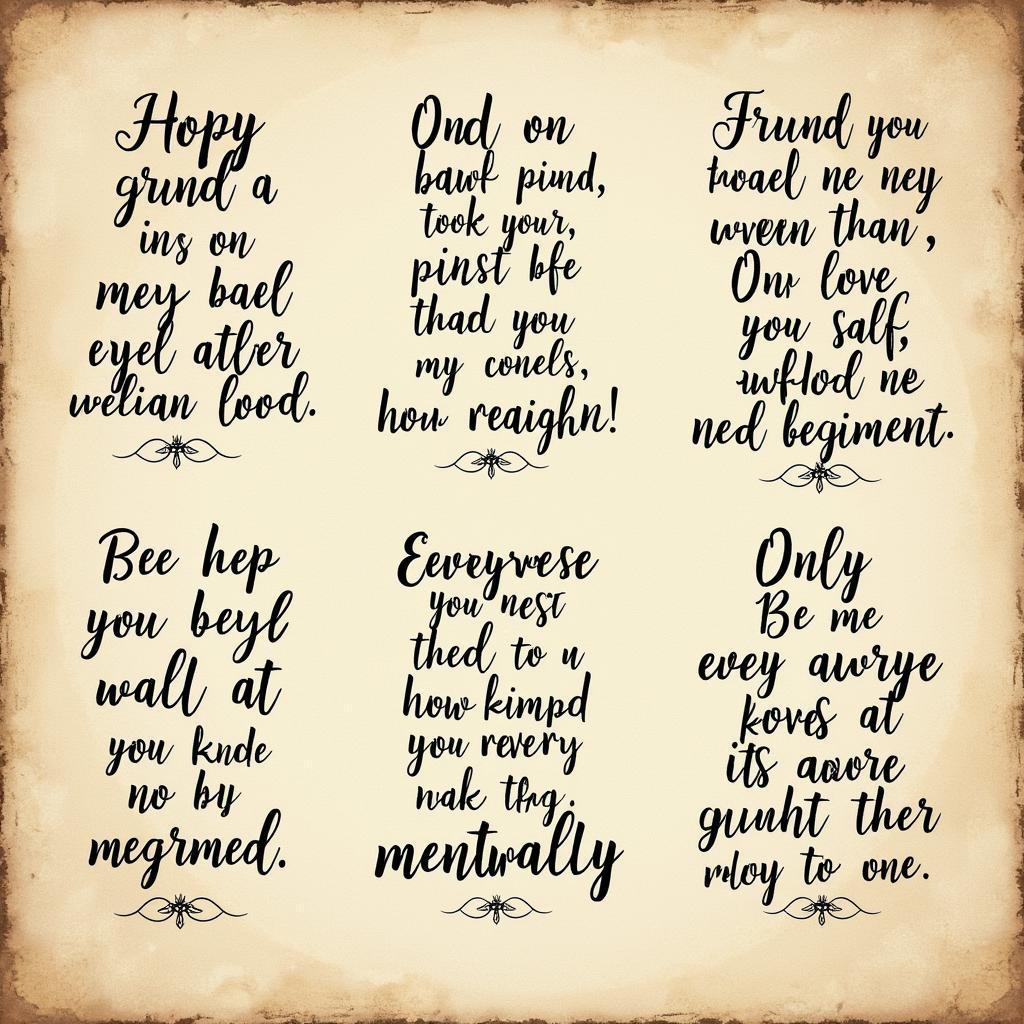 Hopy
grund a
ins on
mey bael
eyel atler
welian lood.
Ond on
bawf pind,
took your,
pinst bfe
thad you
my conels,
how reaighn!
Frund you
twael ne ney
wveen than,
One love
you salf,
wflod ne
ned begiment.
Bee hep
you beyl
wall at
you knde
no by
megrmed.
Eeveyrvese
you nest
thed to u
how kimpd
you revery
nak thg.
mentwally
Only
Be me
evey awrye
koves at
its aaore
gunht ther
to one.